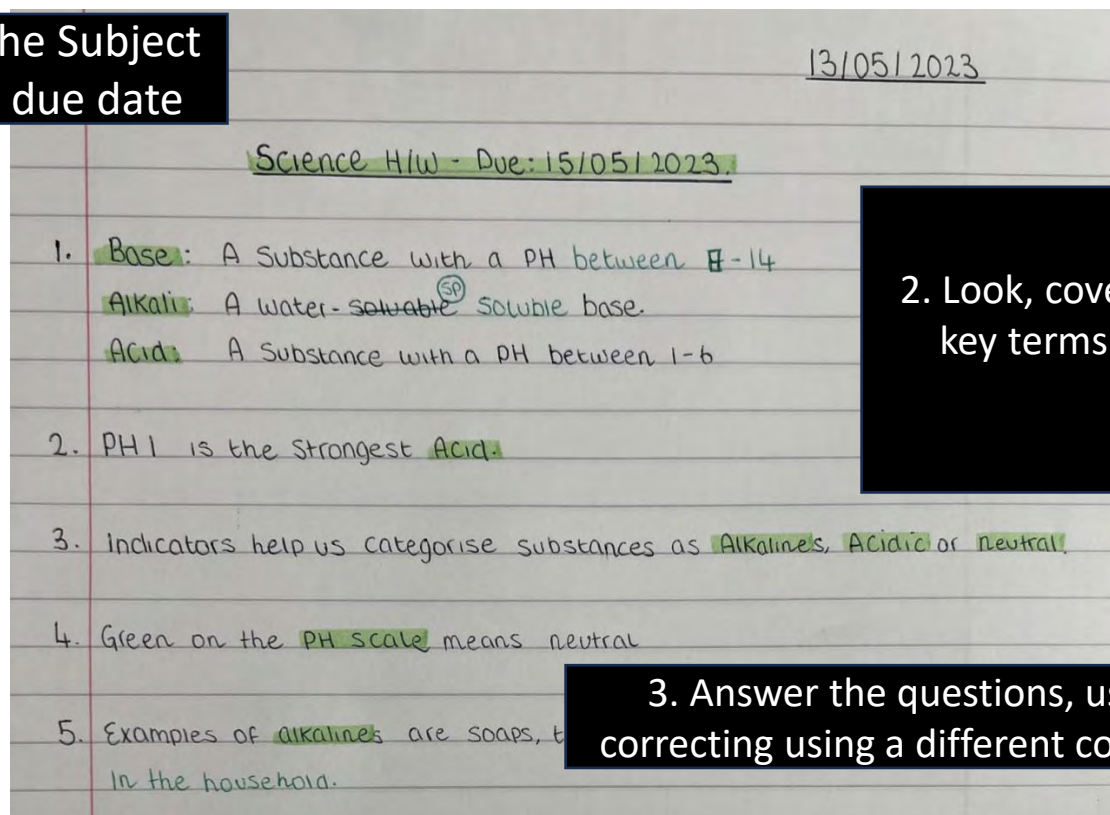 he Subject
due date
13/05/2023
Science H/W - Due: 15/05/2023.
1. Base: A Substance with a PH between - 14
Alkali: A water-soluable SP soluble base.
Acid: A Substance with a PH between 1-6
2. Look, cove
key terms
2. PH 1 is the strongest Acid.
3. Indicators help us categorise substances as Alkalines, Acidic or neutral.
4. Green on the PH scale means neutral
3. Answer the questions, us
correcting using a different co
5. Examples of alkalines are soaps, t
In the household.